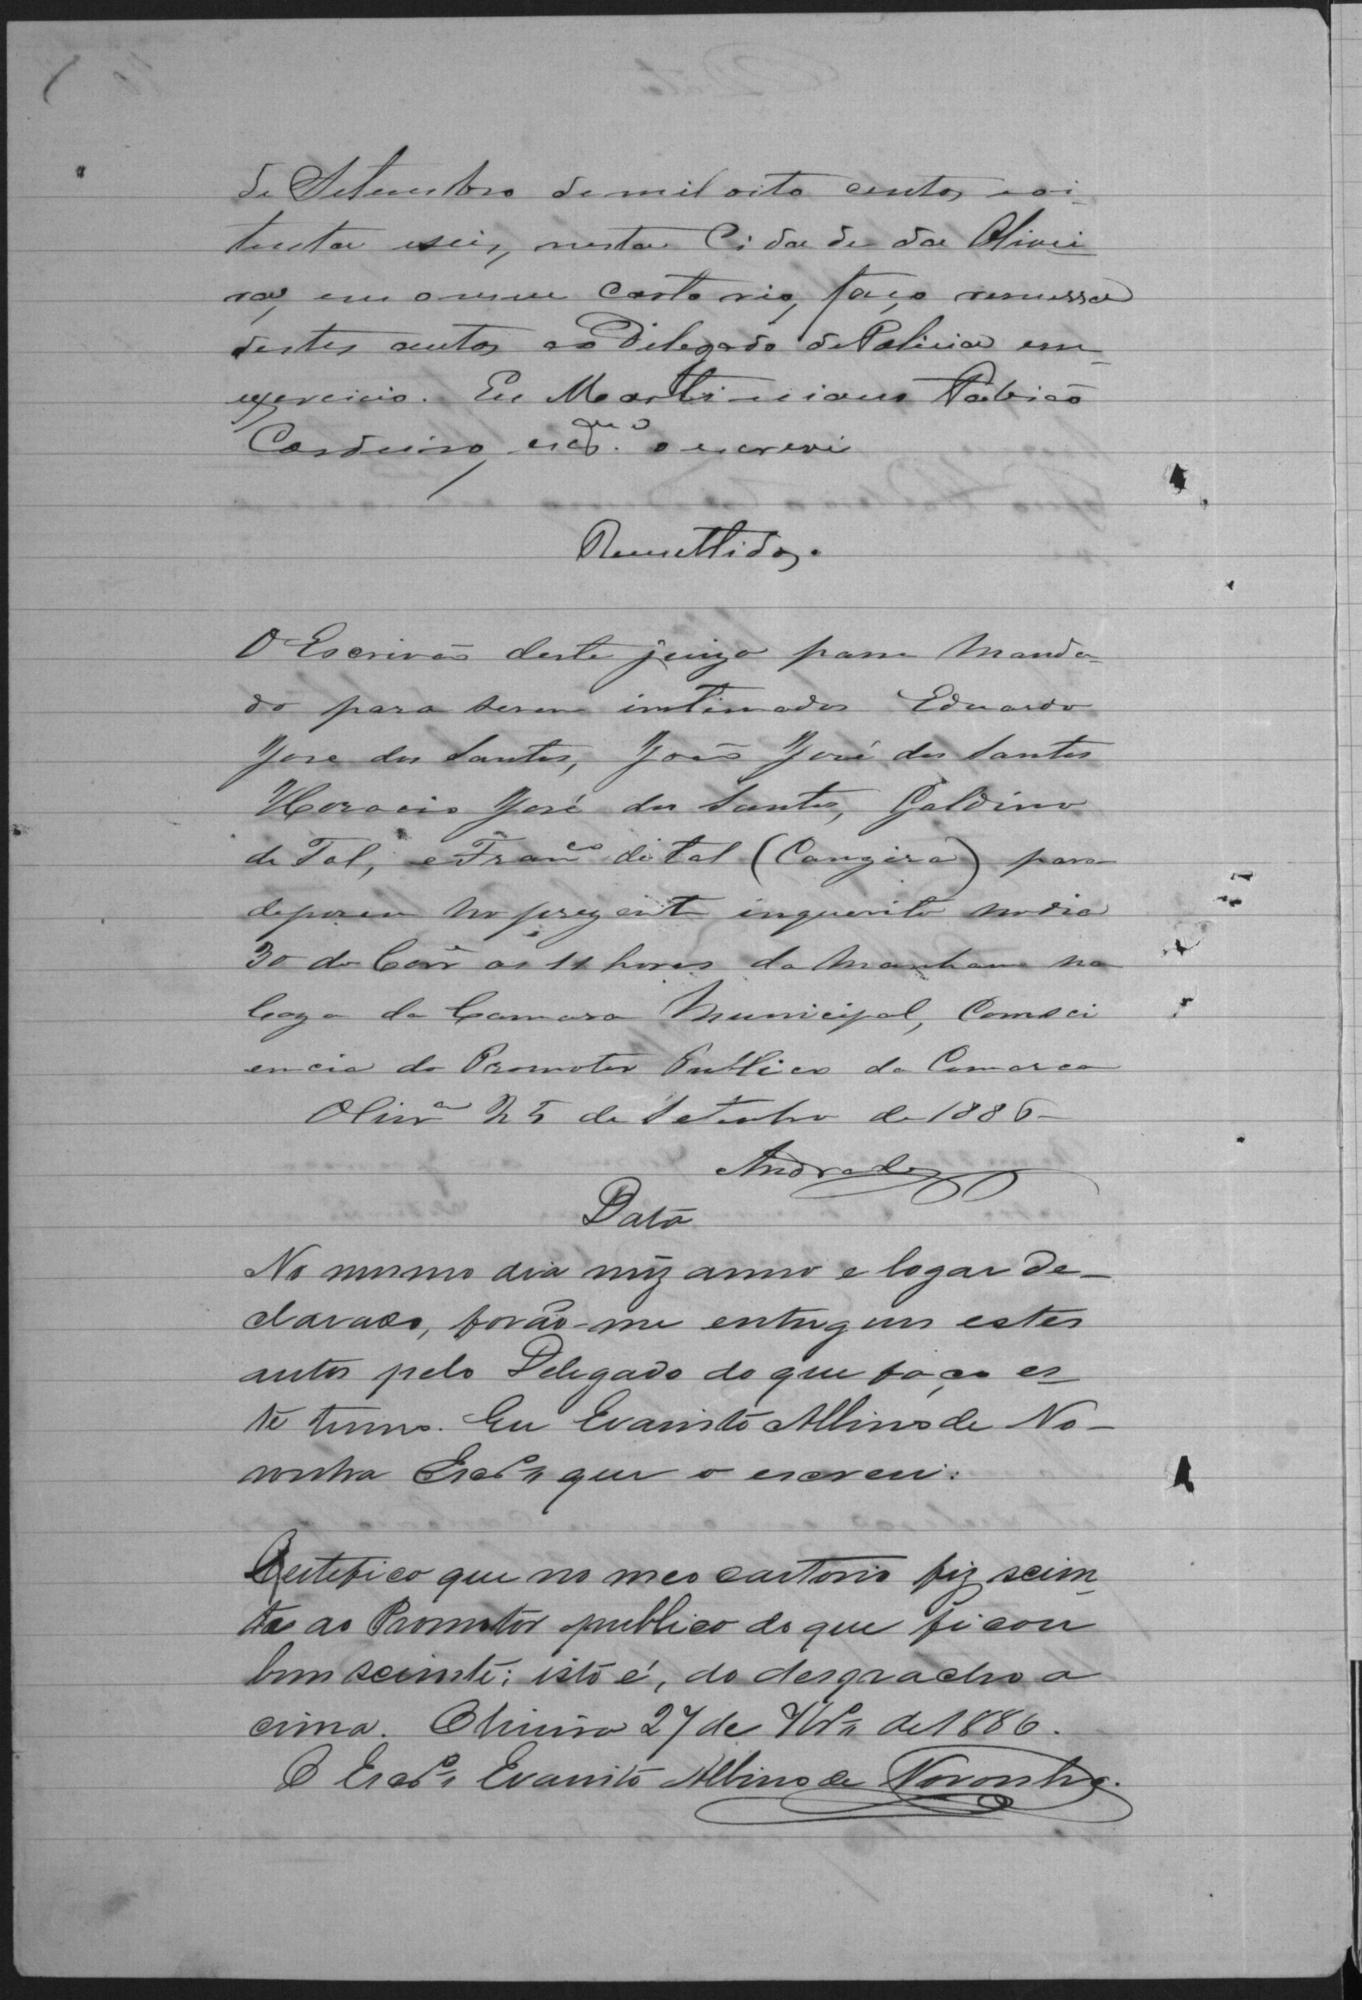 de Setembro de mil oito centos e oi-
tenta e seis, nesta Cidade da Olivei
ra, em o meu cartorio, faço remessa
destes autos ao Delegado de Policia em
exercicio. Eu Martiniano Patricio
Cardeiro, escr. o escrevi
Remettidos.
O Escrivão deste juizo passe Manda-
do para serem intimados Eduardo
Jose dos Santos, João José dos Santos
Horacio José dos Santos, Galdino
de Tal, e Franco de tal (Cangira) para
deporem no prezente inquerito no dia
30 do Corr as 11 horas da manham na
Caza da Camara Municipal, Com sci
encia do Promotor Publico da Comarca
Olivra 25 de Setembro de 1886
Andrade
Data
No mesmo dia mêz anno e logar de-
clarado, forão-me entregues estes
autos pelo Delegado do que faço es-
te termo. Eu Evaristo Albino de No-
ronha Escr que o escrevi.
Certifico que no meo cartorio fiz scien-
te ao Promotor publico do que ficou
bem sciente; isto é, do despacho a
cima. Oliveira 27 de 7br de 1886.
O Escr Evaristo Albino de Noronha.